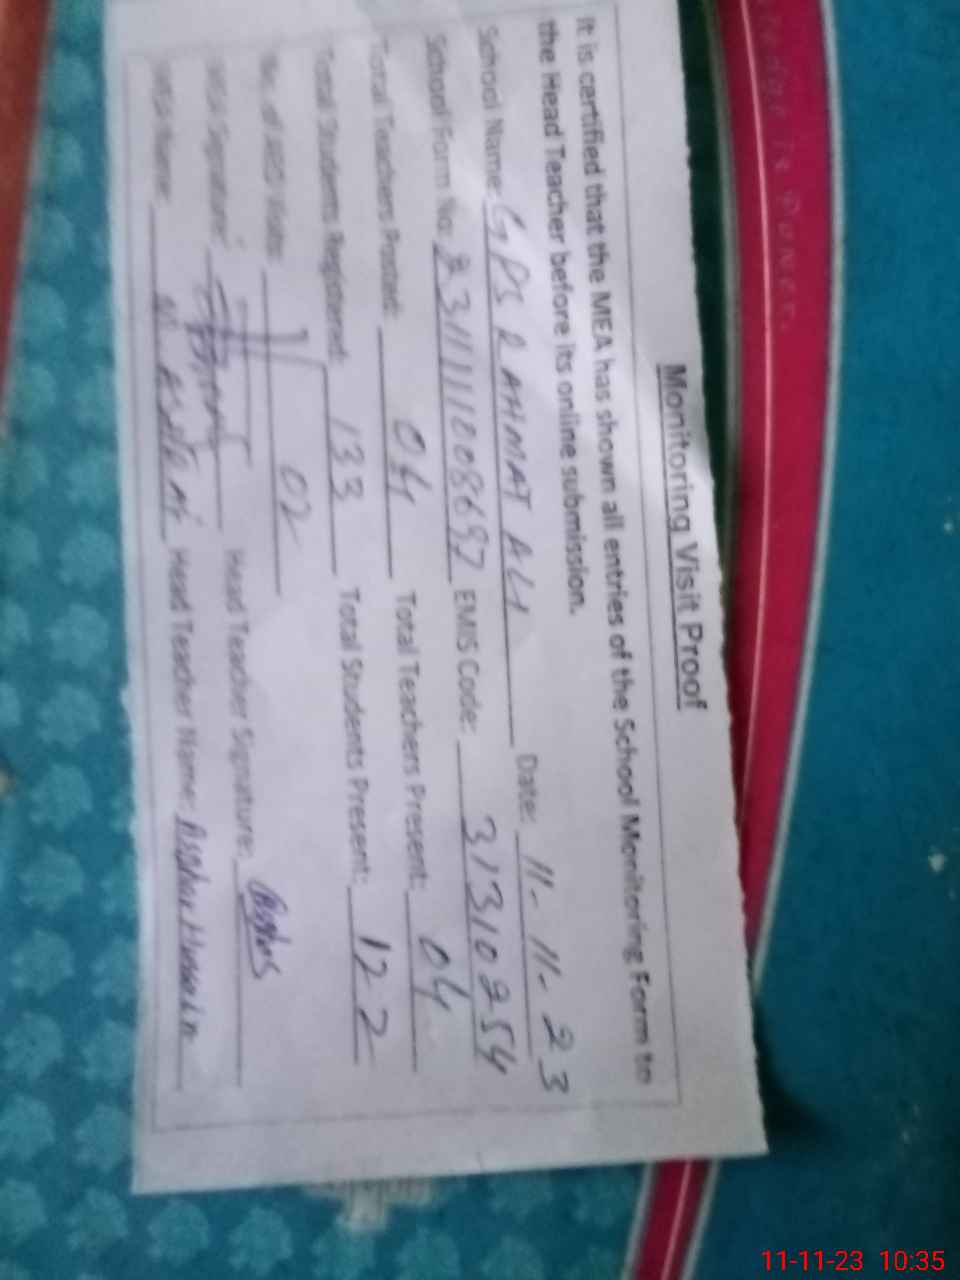 Monitoring Visit Proof
It is certified that the MEA has shown all entries of the School Monitoring Form to
the Head Teacher before its online submission.
School Name: GPS RAHMAT ALI Date: 11-11-23
School Form No: 231111108697 EMIS Code: 31310254
Total Teachers Posted: 04 Total Teachers Present: 04
Total Students Registered: 133 Total Students Present: 122
No. of Visits: 02
Signature: Head Teacher Signature: Asghar
Name: Head Teacher Name: Asghar Hussain
is Power.
11-11-23 10:35